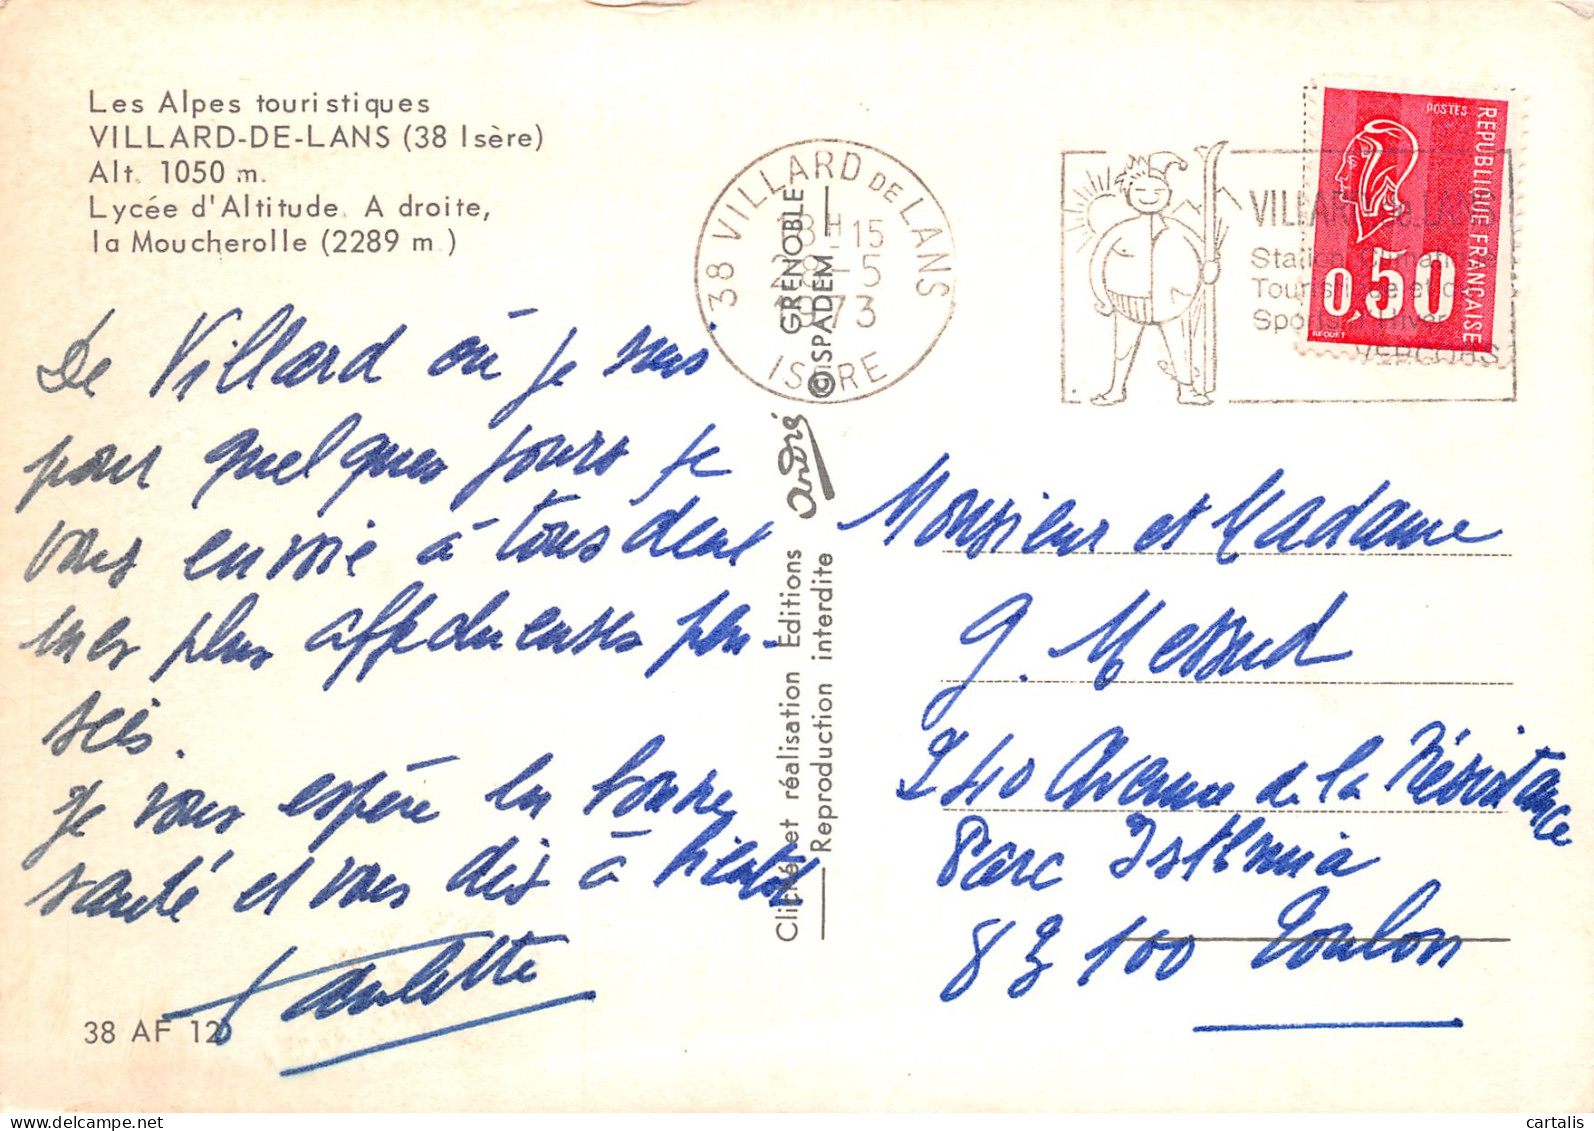 Les Alpes touristiques
VILLARD-DE-LANS (38 Isère)
Alt. 1050 m.
Lycée d'Altitude. A droite,
la Moucherolle (2289 m.)
De Villard où je suis
pour quelques jours je
vous envoie à tous deux
mes plus affectueuses pen-
sées.
Je vous espère en bonne
santé et vous dis à bientôt
Paulette
38 AF 12
38 VILLARD DE LANS
18H-15
28-5
1973
ISERE
GRENOBLE
© SPADEM
André
Cliché et réalisation Editions
Reproduction interdite
VILLARD de LANS
Station Climatique
Touristique et de
Sports d'Hiver
VERCORS
POSTES
REPUBLIQUE FRANÇAISE
0,50
BEQUET
Monsieur et Madame
G.
240 Avenue de la Résistance
Parc Isthmia
83100 Toulon
cartalis